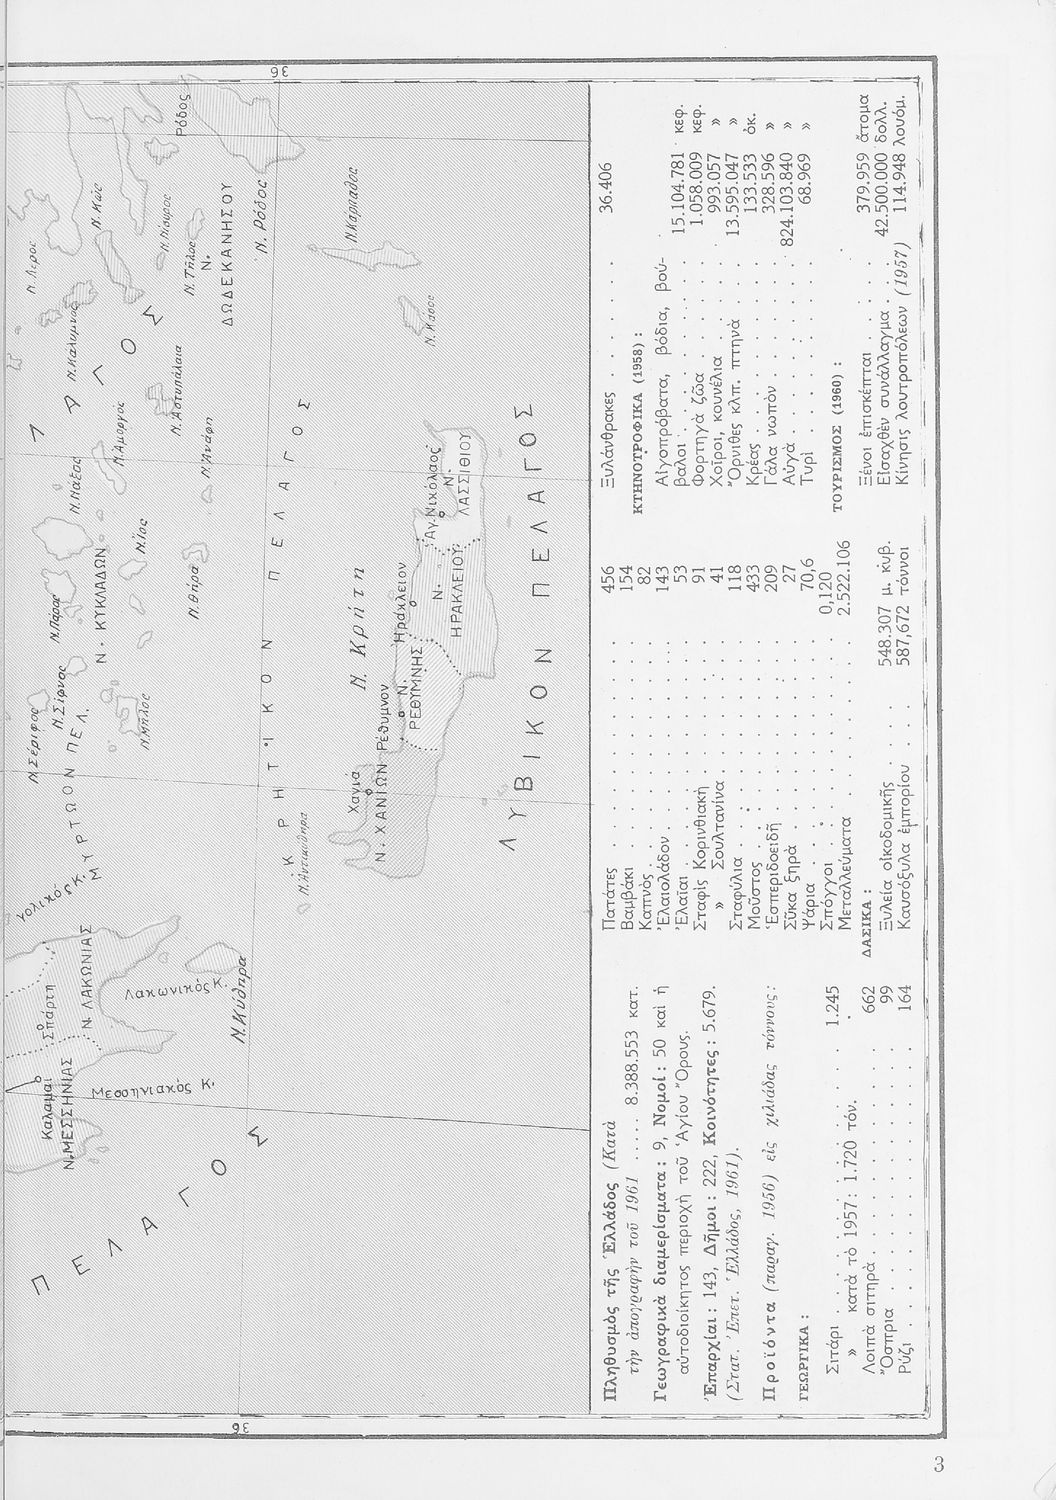 36
Ν. Λέρος
Ν. Κῶς
Ρόδος
Ν. Κάλυμνος
Ν. Νίσυρος
Ν. Τῆλος
Ν.
ΔΩΔΕΚΑΝΗΣΟΥ
Ν. Ρόδος
Ν. Κάρπαθος
Ν. Κάσος
Ν. Ἀστυπάλαια
Ν. Ἀμοργός
Ν. Ἀνάφη
Ν. Νάξος
Ν. Ἴος
Ν. Θήρα
Ν. Πάρος
Ν. ΚΥΚΛΑΔΩΝ
Ν. Σίφνος
Ν. Σέριφος
Ν. Μῆλος
ΜΥΡΤΩΟΝ ΠΕΛ.
ΚΡΗΤΙΚΟΝ ΠΕΛΑΓΟΣ
Ν. Κρήτη
Χανιά
Ν. ΧΑΝΙΩΝ
Ρέθυμνον
Ν.
ΡΕΘΥΜΝΗΣ
Ἡράκλειον
Ν.
ΗΡΑΚΛΕΙΟΥ
Ἁγ. Νικόλαος
Ν.
ΛΑΣΣΙΘΙΟΥ
ΛΥΒΙΚΟΝ ΠΕΛΑΓΟΣ
Ν. Ἀντικύθηρα
Ν. Κύθηρα
Λακωνικός Κ.
Ν. ΛΑΚΩΝΙΑΣ
Σπάρτη
Καλαμαι
Ν. ΜΕΣΣΗΝΙΑΣ
Μεσσηνιακός Κ.
ΠΕΛΑΓΟΣ
36
Πληθυσμὸς τῆς Ἑλλάδος (Κατὰ
τὴν ἀπογραφὴν τοῦ 1961 ..... 8.388.553 κατ.
Γεωγραφικὰ διαμερίσματα : 9, Νομοί : 50 καὶ ἡ
αὐτοδιοίκητος περιοχὴ τοῦ Ἁγίου Ὄρους.
Ἐπαρχίαι : 143, Δῆμοι : 222, Κοινότητες : 5.679.
(Στατ. Ἐπετ. Ἑλλάδος, 1961).
Προϊόντα (παραγ. 1956) εἰς χιλιάδας τόννους :
ΓΕΩΡΓΙΚΑ :
Σιτάρι . . . . . . . . . . 1.245
» κατὰ τὸ 1957 : 1.720 τόν.
Λοιπὰ σιτηρὰ . . . . . . . . 662
Ὄσπρια . . . . . . . . . . 99
Ρύζι . . . . . . . . . . . 164
Πατάτες . . . . . . . . . . 456
Βαμβάκι . . . . . . . . . . 154
Καπνὸς . . . . . . . . . . 82
Ἐλαιολάδον . . . . . . . . . 143
Ἐλαῖαι . . . . . . . . . . 53
Σταφὶς Κορινθιακὴ . . . . . . 91
» Σουλτανίνα . . . . . . . 41
Σταφύλια . . . . . . . . . 118
Μοῦστος . . . . . . . . . . 433
Ἑσπεριδοειδῆ . . . . . . . . 209
Σῦκα ξηρὰ . . . . . . . . . 27
Ψάρια . . . . . . . . . . 70,6
Σπόγγοι . . . . . . . . . 0,120
Μεταλλεύματα . . . . . . 2.522.106
ΔΑΣΙΚΑ :
Ξυλεία οἰκοδομικῆς . . . 548.307 μ. κυβ.
Καυσόξυλα ἐμπορίου . . . 587,672 τόννοι
Ξυλάνθρακες . . . . . . 36.406
ΚΤΗΝΟΤΡΟΦΙΚΑ (1958) :
Αἰγοπρόβατα, βόδια, βού-
βαλοι . . . . . . . 15.104.781 κεφ.
Φορτηγὰ ζῶα . . . . . 1.058.009 κεφ.
Χοῖροι, κουνέλια . . . . 993.057 »
Ὄρνιθες κλπ. πτηνὰ . . . 13.595.047 »
Κρέας . . . . . . . 133.533 ὀκ.
Γάλα νωπὸν . . . . . . 328.596 »
Αὐγὰ . . . . . . . 824.103.840 »
Τυρὶ . . . . . . . 68.969 »
ΤΟΥΡΙΣΜΟΣ (1960) :
Ξένοι ἐπισκέπται . . . . 379.959 ἄτομα
Εἰσαχθὲν συνάλλαγμα . . . 42.500.000 δολλ.
Κίνησις λουτροπόλεων (1957) 114.948 λουόμ.
3